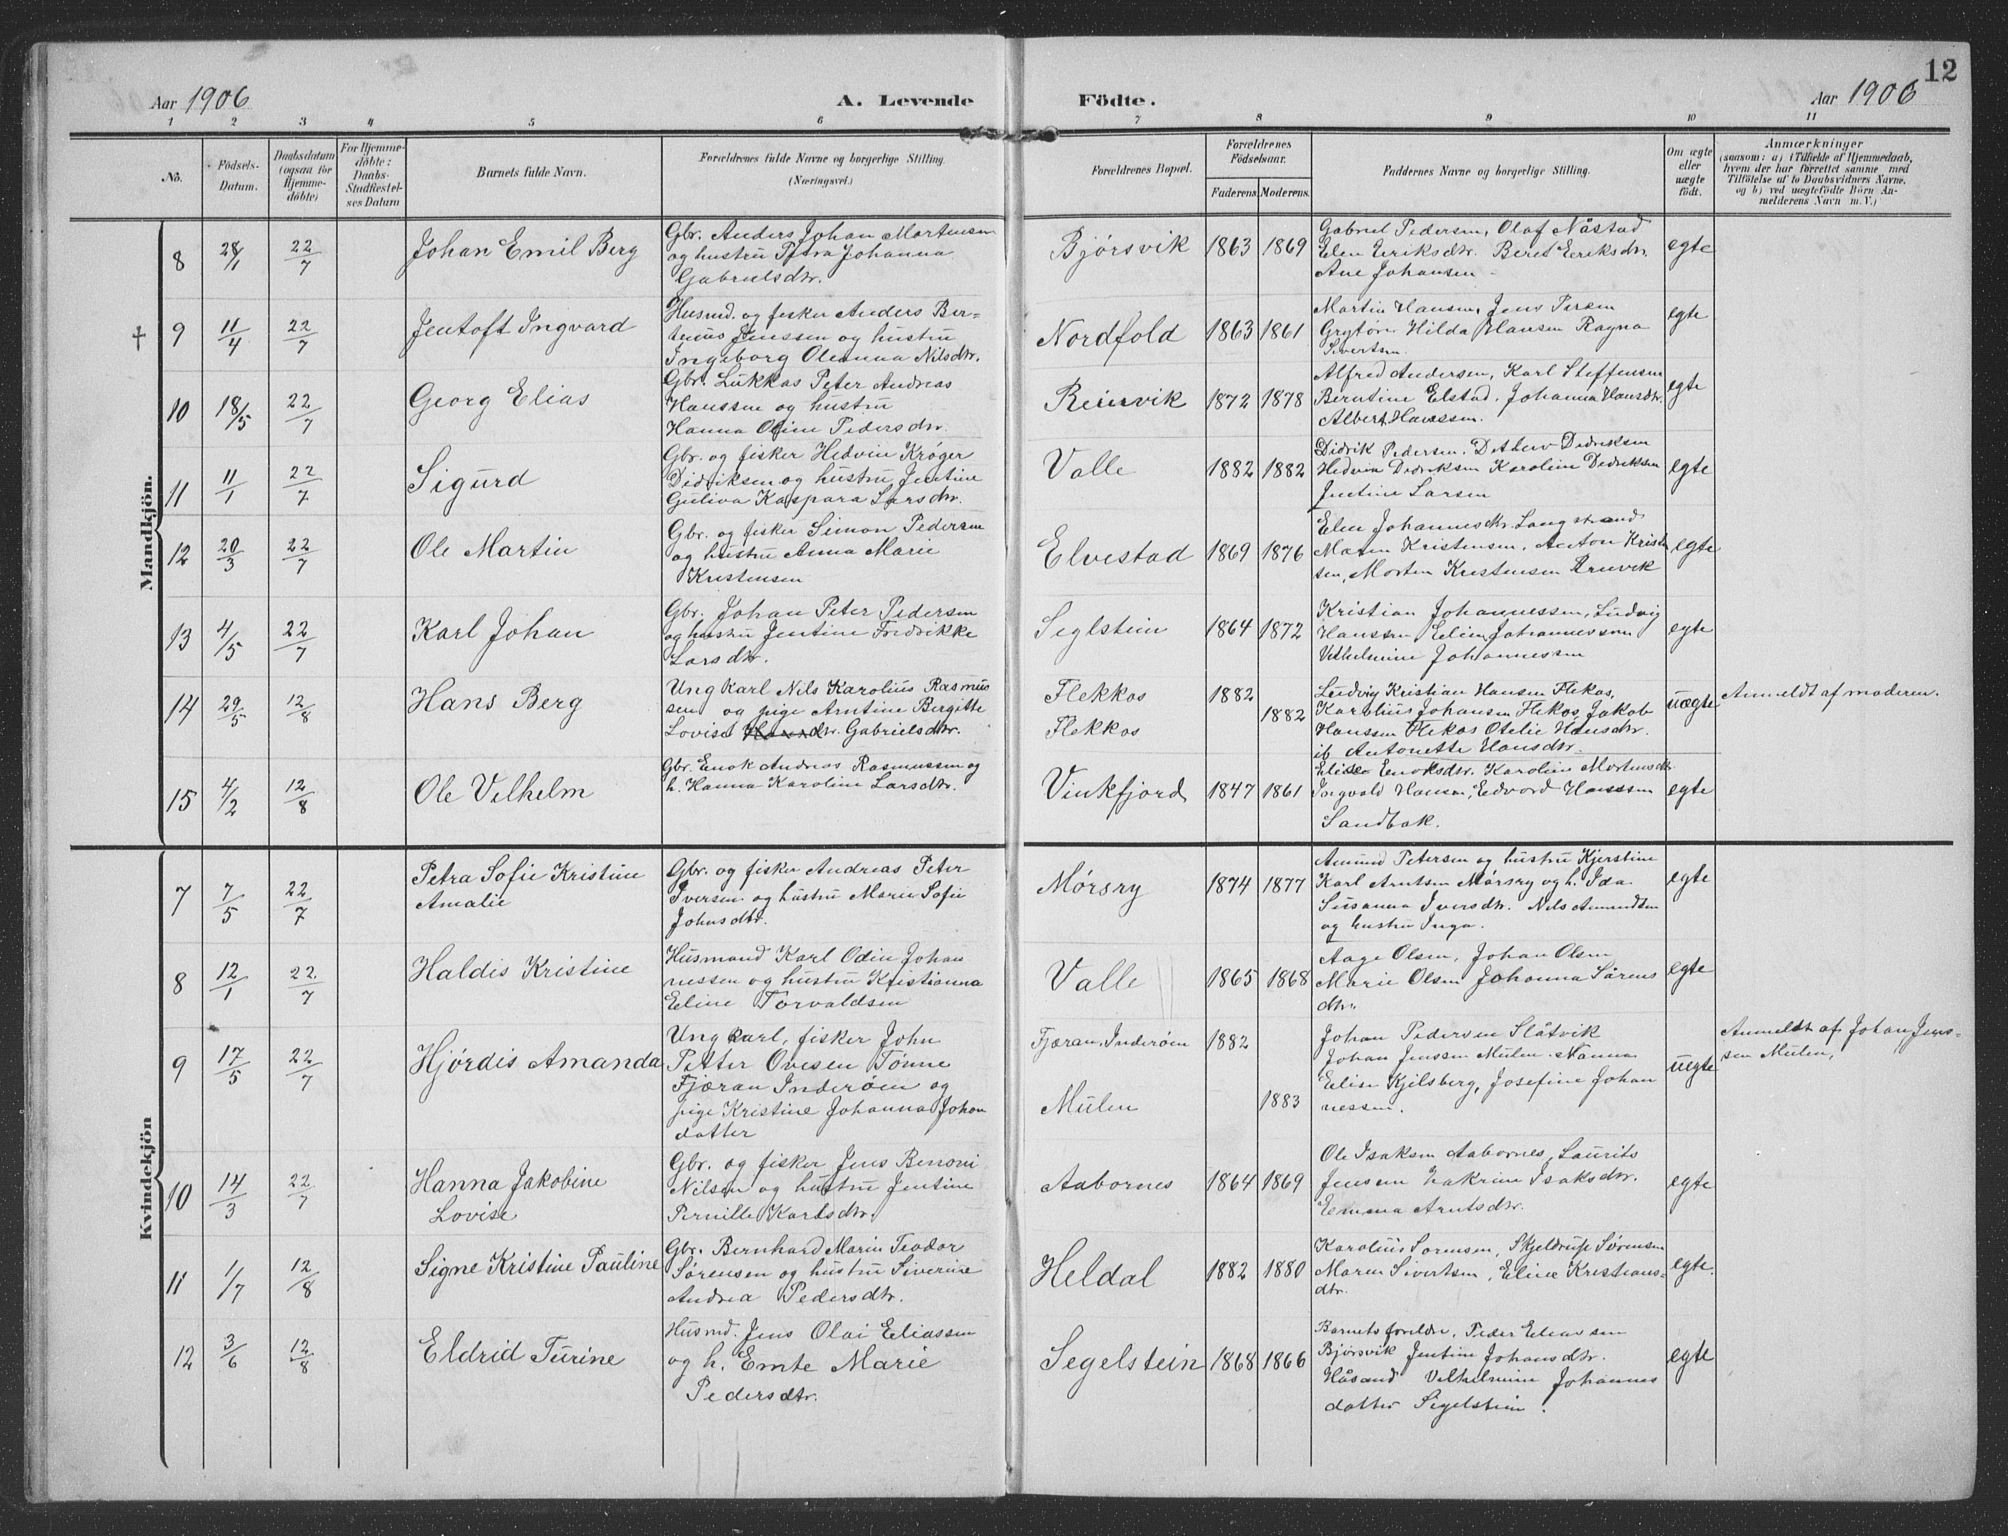 12
Aar 1906
A. Levende
Födte.
Aar 1906
1 2 3 4 5 6 7 8 9 10 11
No.
Födsels-
Datum.
Daabsdatum
(ogsaa for
Hjemme-
döbte)
For Hjemme-
döbte:
Daabs-
Stadfæstel-
ses Datum
Barnets fulde Navn.
Forældrenes fulde Navne og borgerlige Stilling.
(Næringsvei.)
Forældrenes Bopæl.
Forældrenes
Födselsaar.
Faderens. Moderens.
Faddernes Navne og borgerlige Stilling.
Om ægte
eller
uægte
födt.
Anmærkninger
(saasom: a) i Tilfælde af Hjemmedaab,
hvem der har forrettet samme med
Tilföielse af to Daabsvidners Navne,
og b) ved uægtefödte Börn An-
melderens Navn m. V.)
Mandkjön.
8 28/1 22/7 Johan Emil Berg
Gbr. Anders Johan Martensen
og hustru Petra Johanna
Gabrielsdtr.
Bjørsvik 1863 1869
Gabriel Pedersen, Olaf Nåstad
Elen Eriksdtr. Beret Eriksdtr.
Ane Johansen
egte
† 9 11/4 22/7 Jentoft Ingvard
Husmd. og fisker Anders Ber-
tinus Jenssen og hustru
Ingeborg Oleanna Nilsdtr.
Nordfold 1863 1861
Martin Hansen, Jens
Grytøren Hilda Hansen Ragna
Sivertsen.
egte
10 18/5 22/7 Georg Elias
Gbr. Lukkas Peter Andreas
Hanssen og hustru
Hanna Oline Pedersdtr.
Reinvik 1872 1878
Alfred Andersen, Karl Steffensen
Berntine Elstad, Johanna Hansdtr.
Albert Hanssen.
egte
11 11/1 22/7 Sigurd
Gbr. og fisker Hedvin Krøger
Didriksen og hustru Jentine
Guliva Kaspara Larsdtr.
Valle 1882 1882
Didrik Pedersen, Detlew Dedriksen
Hedvin Dedriksen Karoline Dedriksen
Jentine Larsen
egte
12 20/3 22/7 Ole Martin
Gbr. og fisker Simon Pedersen
og hustru Anna Marie
Kristensen
Elvestad 1869 1876
Elen Johannesdtr. Langstrand
Maren Kristensen, Anton Krist
sen, Morten Kristensen
egte
13 4/5 22/7 Karl Johan
Gbr. Johan Peter Pedersen
og hustru Jentine Fredrikke
Larsdtr.
Seglstein 1864 1872
Kristian Johannessen, Ludvig
Hanssen Eline Johannessen
Vilhelmine Johannessen
egte
14 29/5 12/8 Hans Berg
Ungkarl Nils Karolius Rasmus
sen og pige Arntine Bergitte
Lovise Gabrielsdtr.
Flekkos 1882
Flekkos 1882
Ludvig Kristian Hansen Flekos,
Karolius Johansen Flekos, Jakob
Hanssen Flekos Otelie Hansdtr.
ib Antonette Hansdtr.
uægte
Anmeldt af moderen.
15 4/2 12/8 Ole Vilhelm
Gbr. Enok Andreas Rasmussen og
h. Hanna Karoline Larsdtr.
Vinkfjord 1847 1861
Elise Enoksdtr. Karoline Mortensdtr.
Ingvald Hansen, Edvard Hanssen
Sandbak.
egte
Kvindekjön
7 7/5 22/7 Petra Sofie Kristine
Amalie
Gbr. og fisker Andreas Peter
Iversen og hustru Marie Sofie
Johnsdtr.
Mørsry 1874 1877
Amund Petersen og hustru Kjerstine
Karl Arntsen Mørsry og h. Ida
Susanna Iversdtr. Nils Amundsen
og hustru Inga.
egte
8 12/1 22/7 Haldis Kristine
Husmand Karl Odin Johan
nessen og hustru Kristianna
Eline Torvaldsen
Valle 1865 1868
Aage Olsen, Johan Olsen
Marie Olsen Johanna Sørens
dtr.
egte
9 17/5 22/7 Hjørdis Amanda
Ungkarl, fisker John
Petter Ovesen Tønne
Fjæran Inderøen og
pige Kristine Johanna Johan
datter
Fjæran, Inderøen 1882
Mulen 1883
Johan Pedersen Slåtvik
Johan Jenssen Mulen. Nanna
Elise Kjelsberg, Josefine Johan
nessen.
uegte
Anmeldt af Johan Jens-
sen Mulen,
10 14/3 22/7 Hanna Jakobine
Lovise
Gbr. og fisker Jens Benoni
Nilsen og hustru Jentine
Pernille Karlsdtr.
Aabornes 1864 1869
Ole Isaksen Aabornes, Laurits
Jensen Isaksdtr.
Emma Arntsdtr.
egte
11 1/7 12/8 Signe Kristine Pauline
Gbr. Bernhard Marin Teodor
Sørensen og hustru Siverine
Andrea Pedersdtr.
Heldal 1882 1880
Karolius Sørensen, Skjeldrup Sørensen
Maren Sivertsen, Eline Kristians-
dtr.
egte.
12 3/6 12/8 Eldrid Turine
Husmd. Jens Olai Eliassen
og h. Emte Marie
Pedersdtr.
Segelstein 1868 1866
Barnets foreldre, Peder Eliassen
Bjørsvik Jentine Johansdtr.
Håsand Vilhelmine Johannes
datter Segelstein.
egte